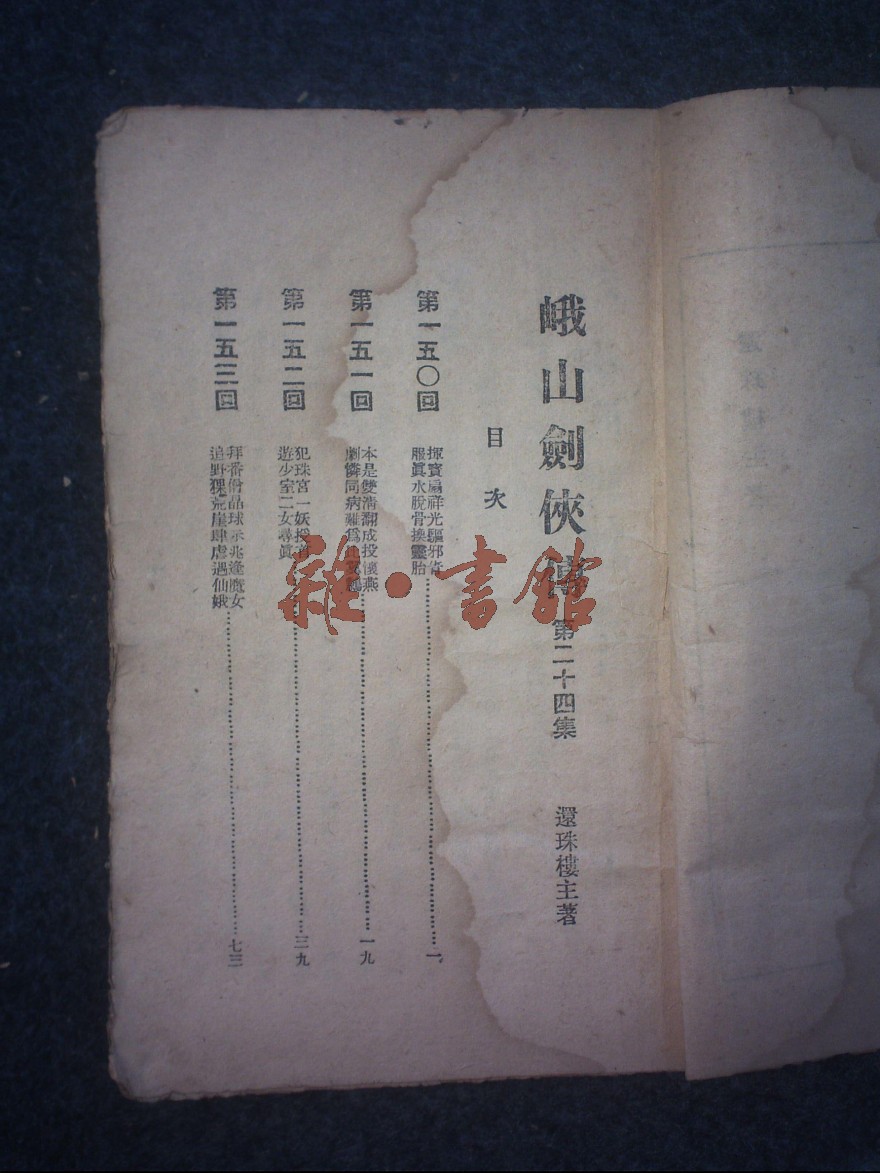 峨山劍俠傳 第二十四集 還珠樓主著
目次
第一五〇回
探寶扇祥光驅邪
服眞水脫骨換靈胎
一
第一五一回
本是雙淸翻成投懷燕
劇憐同病難爲
一九
第一五二回
犯珠宮一妖授
遊少室二女尋眞
三九
第一五三回
拜番僧晶球示兆逢魔女
追野猓荒崖肆虐遇仙娥
七三
雜·書館